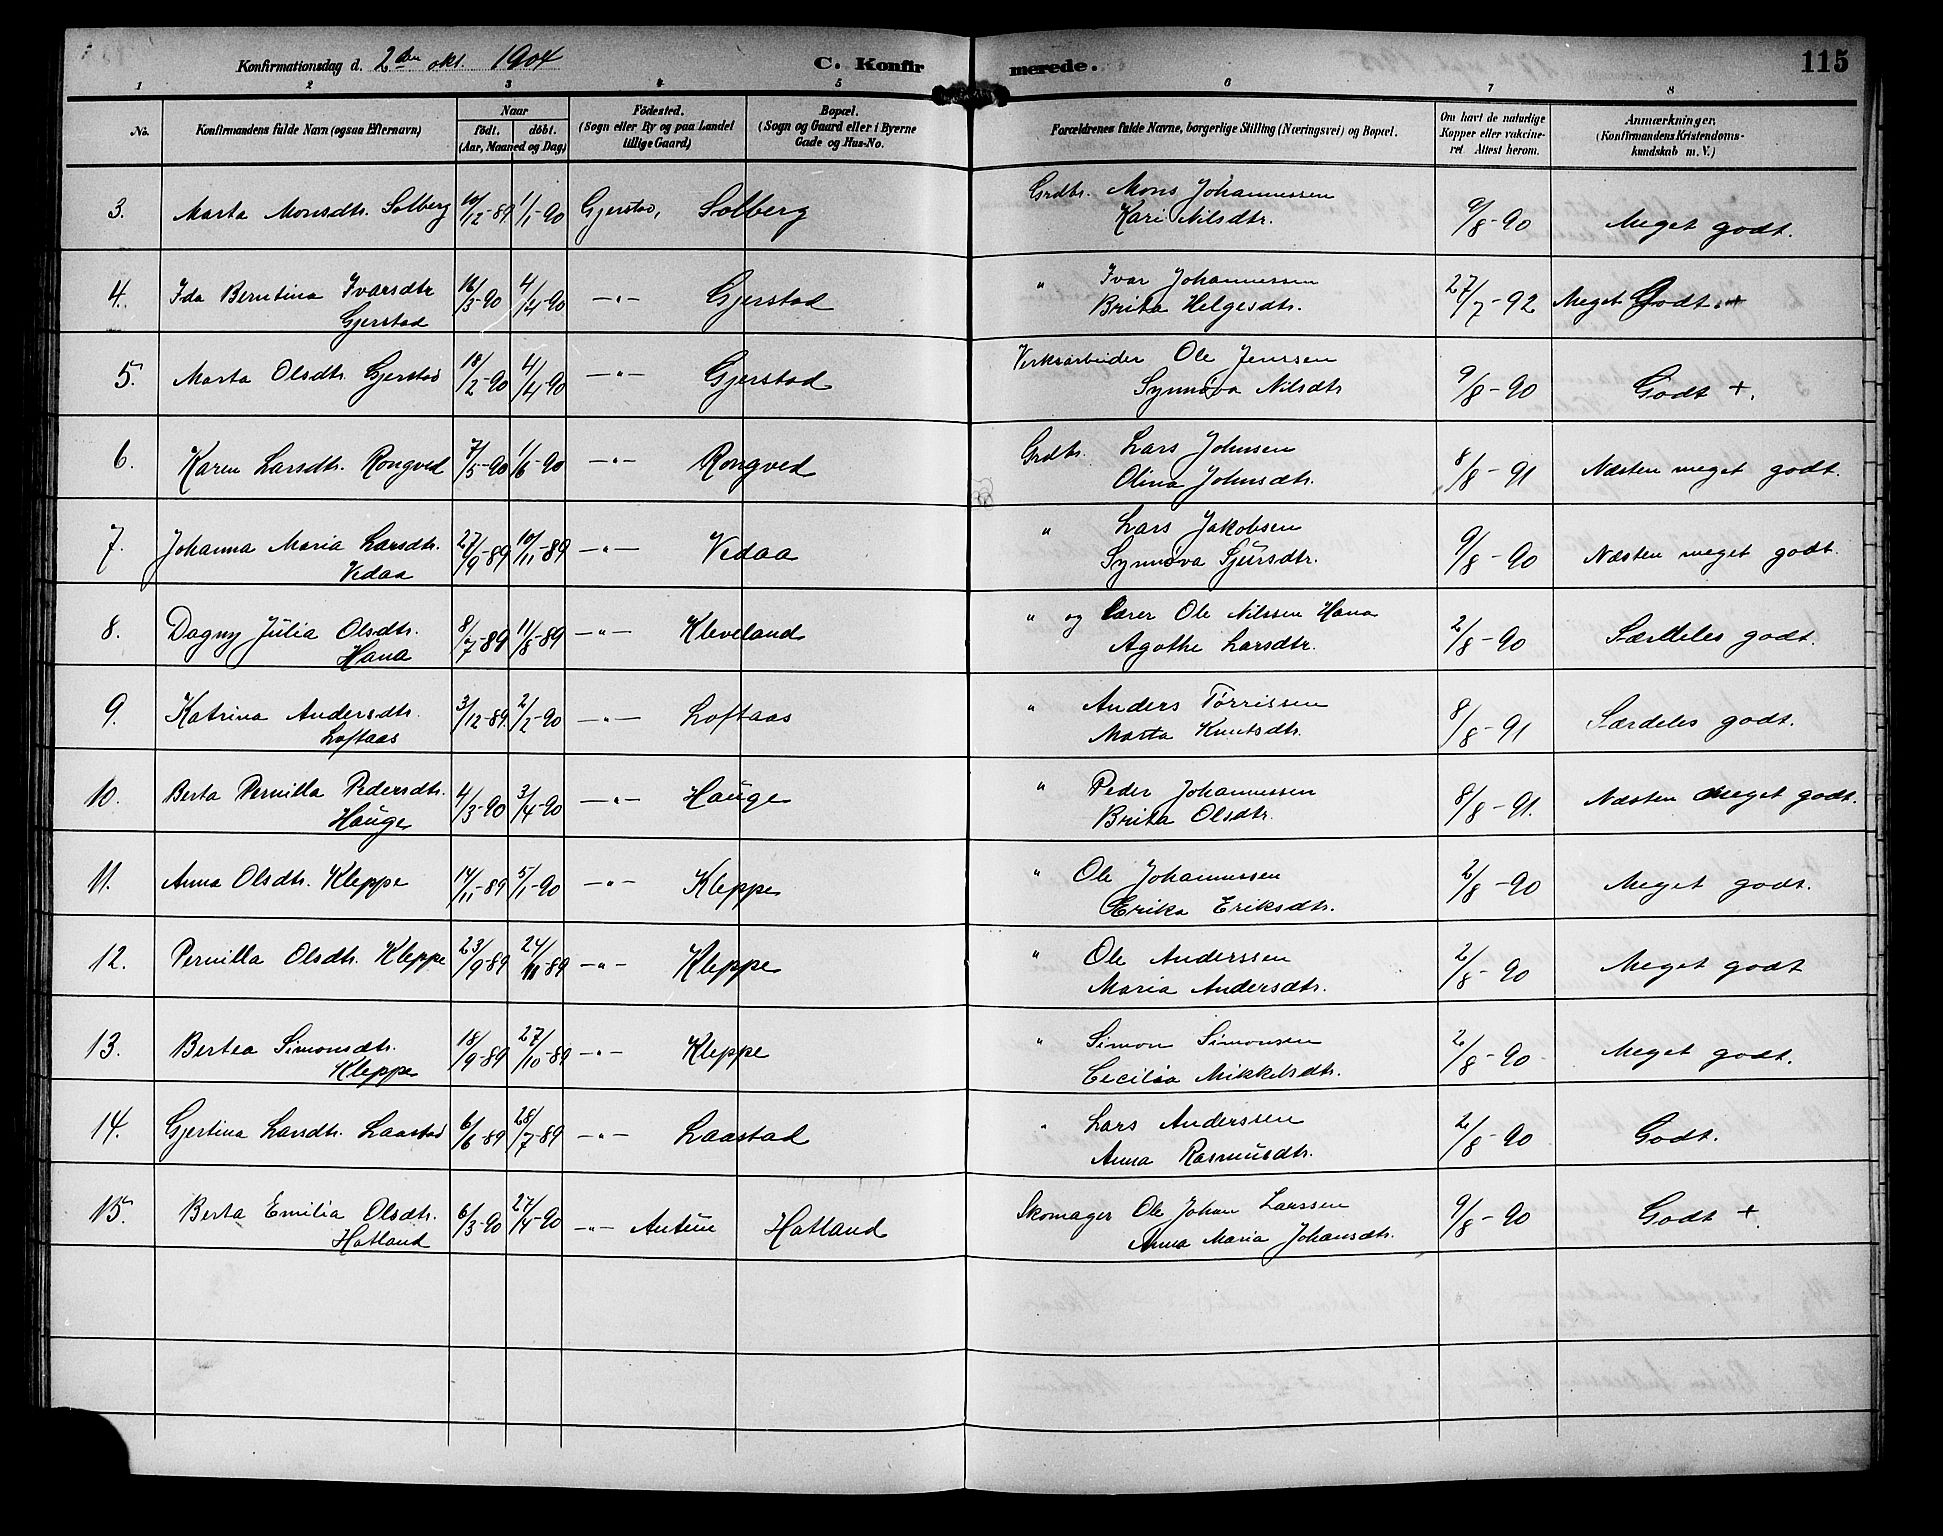 Konfirmationsdag d. 2den okt. 1904 C. Konfirmerede. 115
1 2 3 4 5 6 7 8
No. Konfirmandens fulde Navn (ogsaa Efternavn) Naar født. døbt. (Aar, Maaned og Dag) Fødested. (Sogn eller By og paa Landet tillige Gaard) Bopæl. (Sogn og Gaard eller i Byerne Gade og Hus-No. Forældrenes fulde Navne, borgerlige Stilling (Næringsvei) og Bopæl. Om havt de naturlige Kopper eller vakcineret. Attest herom. Anmærkninger. (Konfirmandens Kristendomskundskab m. V.)
3. Marta Monsdtr. Solberg 10/12-89 1/1-90 Gjerstad, Solberg Grdbr. Mons Johannessen
Kari Nilsdtr. 9/8-90 Meget godt.
4. Ida Berntina Ivarsdtr 16/3-90 4/4-90 —"— Gjerstad " Ivar Johannessen
Gjerstad Brita Helgesdtr. 27/7-92 Meget Godt.+
5. Marta Olsdtr. Gjerstad 18/2-90 4/4-90 —"— Gjerstad Verksarbeider Ole Jenssen
Synnøva Nilsdtr 9/8-90 Godt +.
6. Karen Larsdtr. Rongved 7/5-90 1/6-90 —"— Rongved Grdbr. Lars Johnsen
Olina Johnsdtr. 8/8-91 Næsten meget godt.
7. Johanna Maria Larsdtr. 27/9-89 10/11-89 —"— Vedaa " Lars Jakobsen
Vedaa Synnøva Sjursdtr. 9/8-90 Næsten meget godt.
8. Dagny Julia Olsdtr. 8/7-89 11/8-89 —"— Kleveland " og Lærer Ole Nilssen Hana
Hana Agothe Larsdtr. 2/8-90 Særdeles godt.
9. Katrina Andersdtr. 3/12-89 2/2-90 —"— Loftaas " Anders Tørrissen
Loftaas Marta Knutsdtr. 8/8-91 Særdeles godt.
10. Berta Pernilla Pedersdtr. 4/3-90 3/4-90 —"— Hauge " Peder Johannessen
Hauge Brita Olsdtr. 8/8-91. Næsten meget godt.
11. Anna Olsdtr. Kleppe 14/11-89 5/1-90 —"— Kleppe " Ole Johannessen
Erika Eriksdtr. 2/8-90 Meget godt.
12. Pernilla Olsdtr. Kleppe 23/9-89 24/11-89 —"— Kleppe " Ole Anderssen
Maria Andersdtr. 2/8-90 Meget godt
13. Bertea Simonsdtr. 18/9-89 27/10-89 —"— Kleppe " Simon Simonsen
Kleppe Cecilia Mikkelsdtr. 2/8-90 Meget godt.
14. Gjertina Larsdtr. Laastad 6/6-89 28/7-89 —"— Laastad " Lars Anderssen
Anna Rasmusdtr. 2/8-90 Godt.
15. Berta Emilia Olsdtr. 6/3-90 27/4-90 —"— Antun Hatland Skomager Ole Johan Larssen
Hatland Anna Maria Johansdtr. 9/8-90 Godt +.